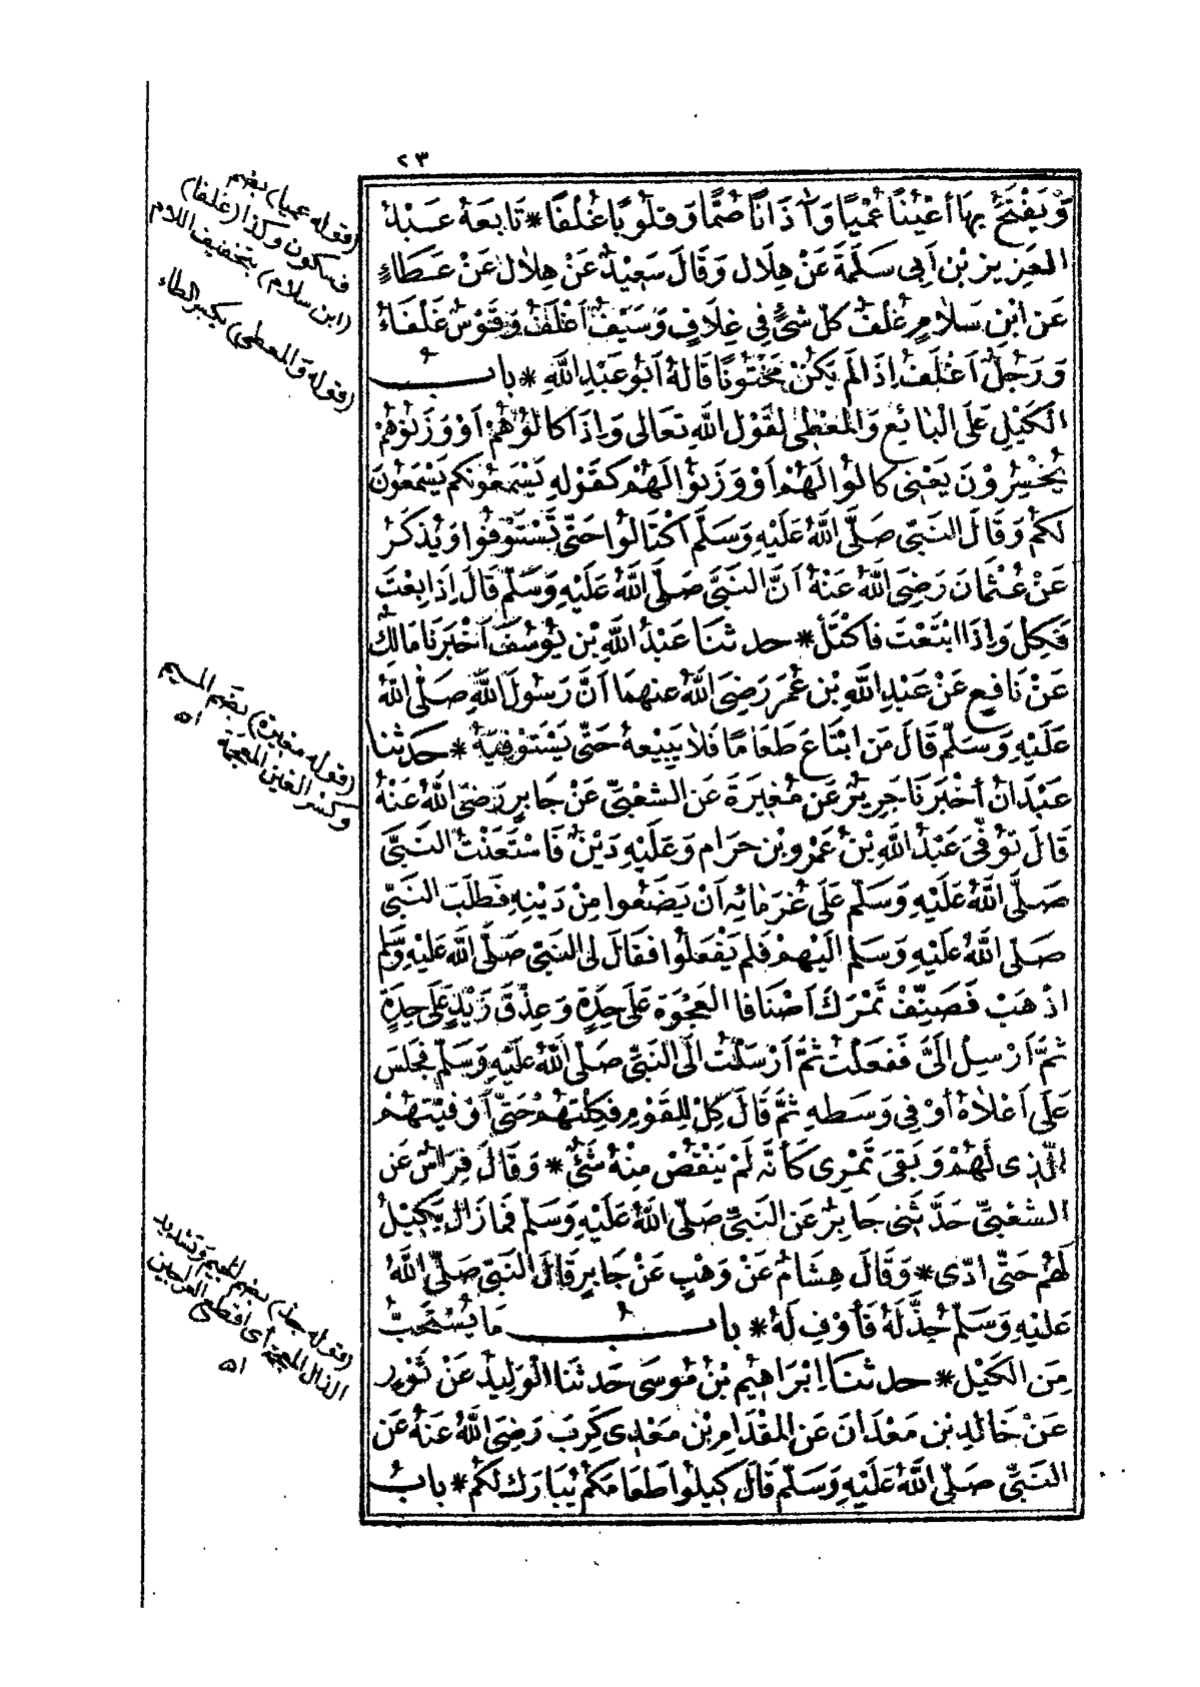 ٢٣
وَيَفْتَحَ بِهَا أَعْيُنًا عُمْيًا وَآذَانًا صُمًّا وَقُلُوبًا غُلْفًا * تَابَعَهُ عَبْدُ
العَزِيزِ بْنِ أَبِي سَلَمَةَ عَنْ هِلَالٍ وَقَالَ سَعِيدٌ عَنْ هِلَالٍ عَنْ عَطَاءٍ
عَنِ ابْنِ سَلَامٍ غُلْفٌ كُلُّ شَيْءٍ فِي غِلَافٍ وَسَيْفٌ أَغْلَفُ وَقَوْسٌ غَلْفَاءُ
وَرَجُلٌ أَغْلَفُ إِذَا لَمْ يَكُنْ مَخْتُونًا قَالَهُ أَبُو عَبْدِ اللَّهِ * بابُ
الكَيْلِ عَلَى الْبَائِعِ وَالْمُعْطِي لِقَوْلِ اللَّهِ تَعَالَى وَإِذَا كَالُوهُمْ أَوْ وَزَنُوهُمْ
يُخْسِرُونَ يَعْنِي كَالُوا لَهُمْ أَوْ وَزَنُوا لَهُمْ كَقَوْلِهِ يَسْمَعُونَكُمْ يَسْمَعُونَ
لَكُمْ وَقَالَ النَّبِيُّ صَلَّى اللَّهُ عَلَيْهِ وَسَلَّمَ اكْتَالُوا حَتَّى تَسْتَوْفُوا وَيُذْكَرُ
عَنْ عُثْمَانَ رَضِيَ اللَّهُ عَنْهُ أَنَّ النَّبِيَّ صَلَّى اللَّهُ عَلَيْهِ وَسَلَّمَ قَالَ إِذَا بِعْتَ
فَكِلْ وَإِذَا ابْتَعْتَ فَاكْتَلْ * حدثنا عَبْدُ اللَّهِ بْنُ يُوسُفَ أَخْبَرَنَا مَالِكٌ
عَنْ نَافِعٍ عَنْ عَبْدِ اللَّهِ بْنِ عُمَرَ رَضِيَ اللَّهُ عَنْهُمَا أَنَّ رَسُولَ اللَّهِ صَلَّى اللَّهُ
عَلَيْهِ وَسَلَّمَ قَالَ مَنِ ابْتَاعَ طَعَامًا فَلَا يَبِيعُهُ حَتَّى يَسْتَوْفِيَهُ * حَدثنا
عَبْدَانُ أَخْبَرَنَا جَرِيرٌ عَنْ مُغِيرَةَ عَنِ الشَّعْبِيِّ عَنْ جَابِرٍ رَضِيَ اللَّهُ عَنْهُ
قَالَ تُوُفِّيَ عَبْدُ اللَّهِ بْنُ عَمْرِو بْنِ حَرَامٍ وَعَلَيْهِ دَيْنٌ فَاسْتَعَنْتُ النَّبِيَّ
صَلَّى اللَّهُ عَلَيْهِ وَسَلَّمَ عَلَى غُرَمَائِهِ أَنْ يَضَعُوا مِنْ دَيْنِهِ فَطَلَبَ النَّبِيُّ
صَلَّى اللَّهُ عَلَيْهِ وَسَلَّمَ إِلَيْهِمْ فَلَمْ يَفْعَلُوا فَقَالَ لِي النَّبِيُّ صَلَّى اللَّهُ عَلَيْهِ وَسَلَّمَ
اذْهَبْ فَصَنِّفْ تَمْرَكَ أَصْنَافًا العَجْوَةَ عَلَى حِدَةٍ وَعِذْقَ زَيْدٍ عَلَى حِدَةٍ
ثُمَّ أَرْسِلْ إِلَيَّ فَفَعَلْتُ ثُمَّ أَرْسَلْتُ إِلَى النَّبِيِّ صَلَّى اللَّهُ عَلَيْهِ وَسَلَّمَ فَجَلَسَ
عَلَى أَعْلَاهُ أَوْ فِي وَسَطِهِ ثُمَّ قَالَ كِلْ لِلْقَوْمِ فَكِلْتُهُمْ حَتَّى أَوْفَيْتُهُمُ
الَّذِي لَهُمْ وَبَقِيَ تَمْرِي كَأَنَّهُ لَمْ يَنْقُصْ مِنْهُ شَيْءٌ * وَقَالَ فِرَاسٌ عَنِ
الشَّعْبِيِّ حَدَّثَنِي جَابِرٌ عَنِ النَّبِيِّ صَلَّى اللَّهُ عَلَيْهِ وَسَلَّمَ فَمَا زَالَ يَكِيلُ
لَهُمْ حَتَّى أَدَّى * وَقَالَ هِشَامٌ عَنْ وَهْبٍ عَنْ جَابِرٍ قَالَ النَّبِيُّ صَلَّى اللَّهُ
عَلَيْهِ وَسَلَّمَ جُذَّ لَهُ فَأَوْفِ لَهُ * بابُ مَا يُسْتَحَبُّ
مِنَ الكَيْلِ * حدثنا إِبْرَاهِيمُ بْنُ مُوسَى حَدثنَا الوَلِيدُ عَنْ ثَوْرٍ
عَنْ خَالِدِ بْنِ مَعْدَانَ عَنِ المِقْدَامِ بْنِ مَعْدِي كَرِبَ رَضِيَ اللَّهُ عَنْهُ عَنِ
النَّبِيِّ صَلَّى اللَّهُ عَلَيْهِ وَسَلَّمَ قَالَ كِيلُوا طَعَامَكُمْ يُبَارَكْ لَكُمْ * بابُ
(قوله عميا) بضم
فسكون وكذا (غلفا)
(ابن سلام) بتخفيف اللام
(قوله والمعطى) بكسر الطاء
(قوله مغيرة) بضم الميم
وكسر الغين المعجمة اه
(قوله جذ) بضم الجيم وتشديد
الذال المعجمة أى اقطع العراجين
اه